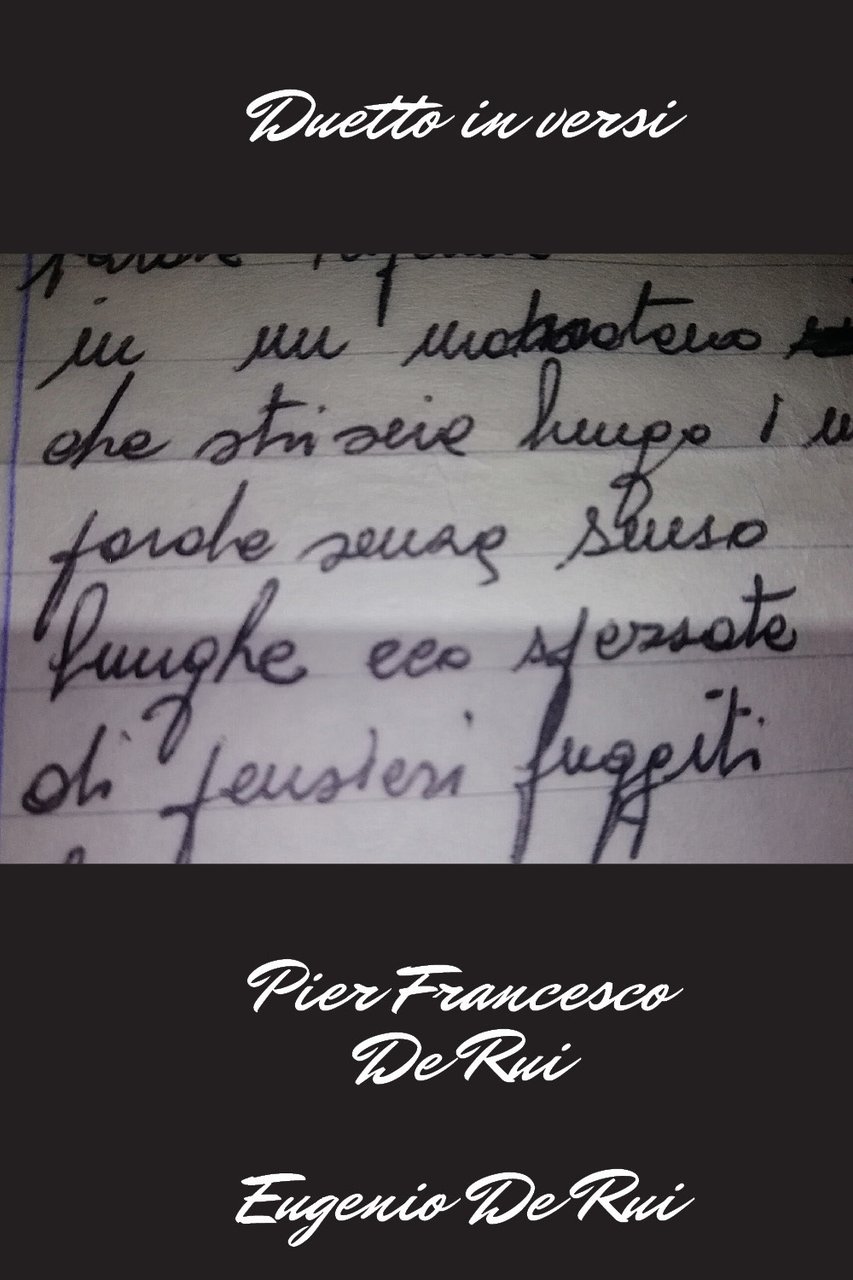 Duetto in versi
in un
che striscia lungo i
parole senza senso
lunghe eco sferzate
di pensieri fuggiti
Pier Francesco
De Rui
Eugenio De Rui